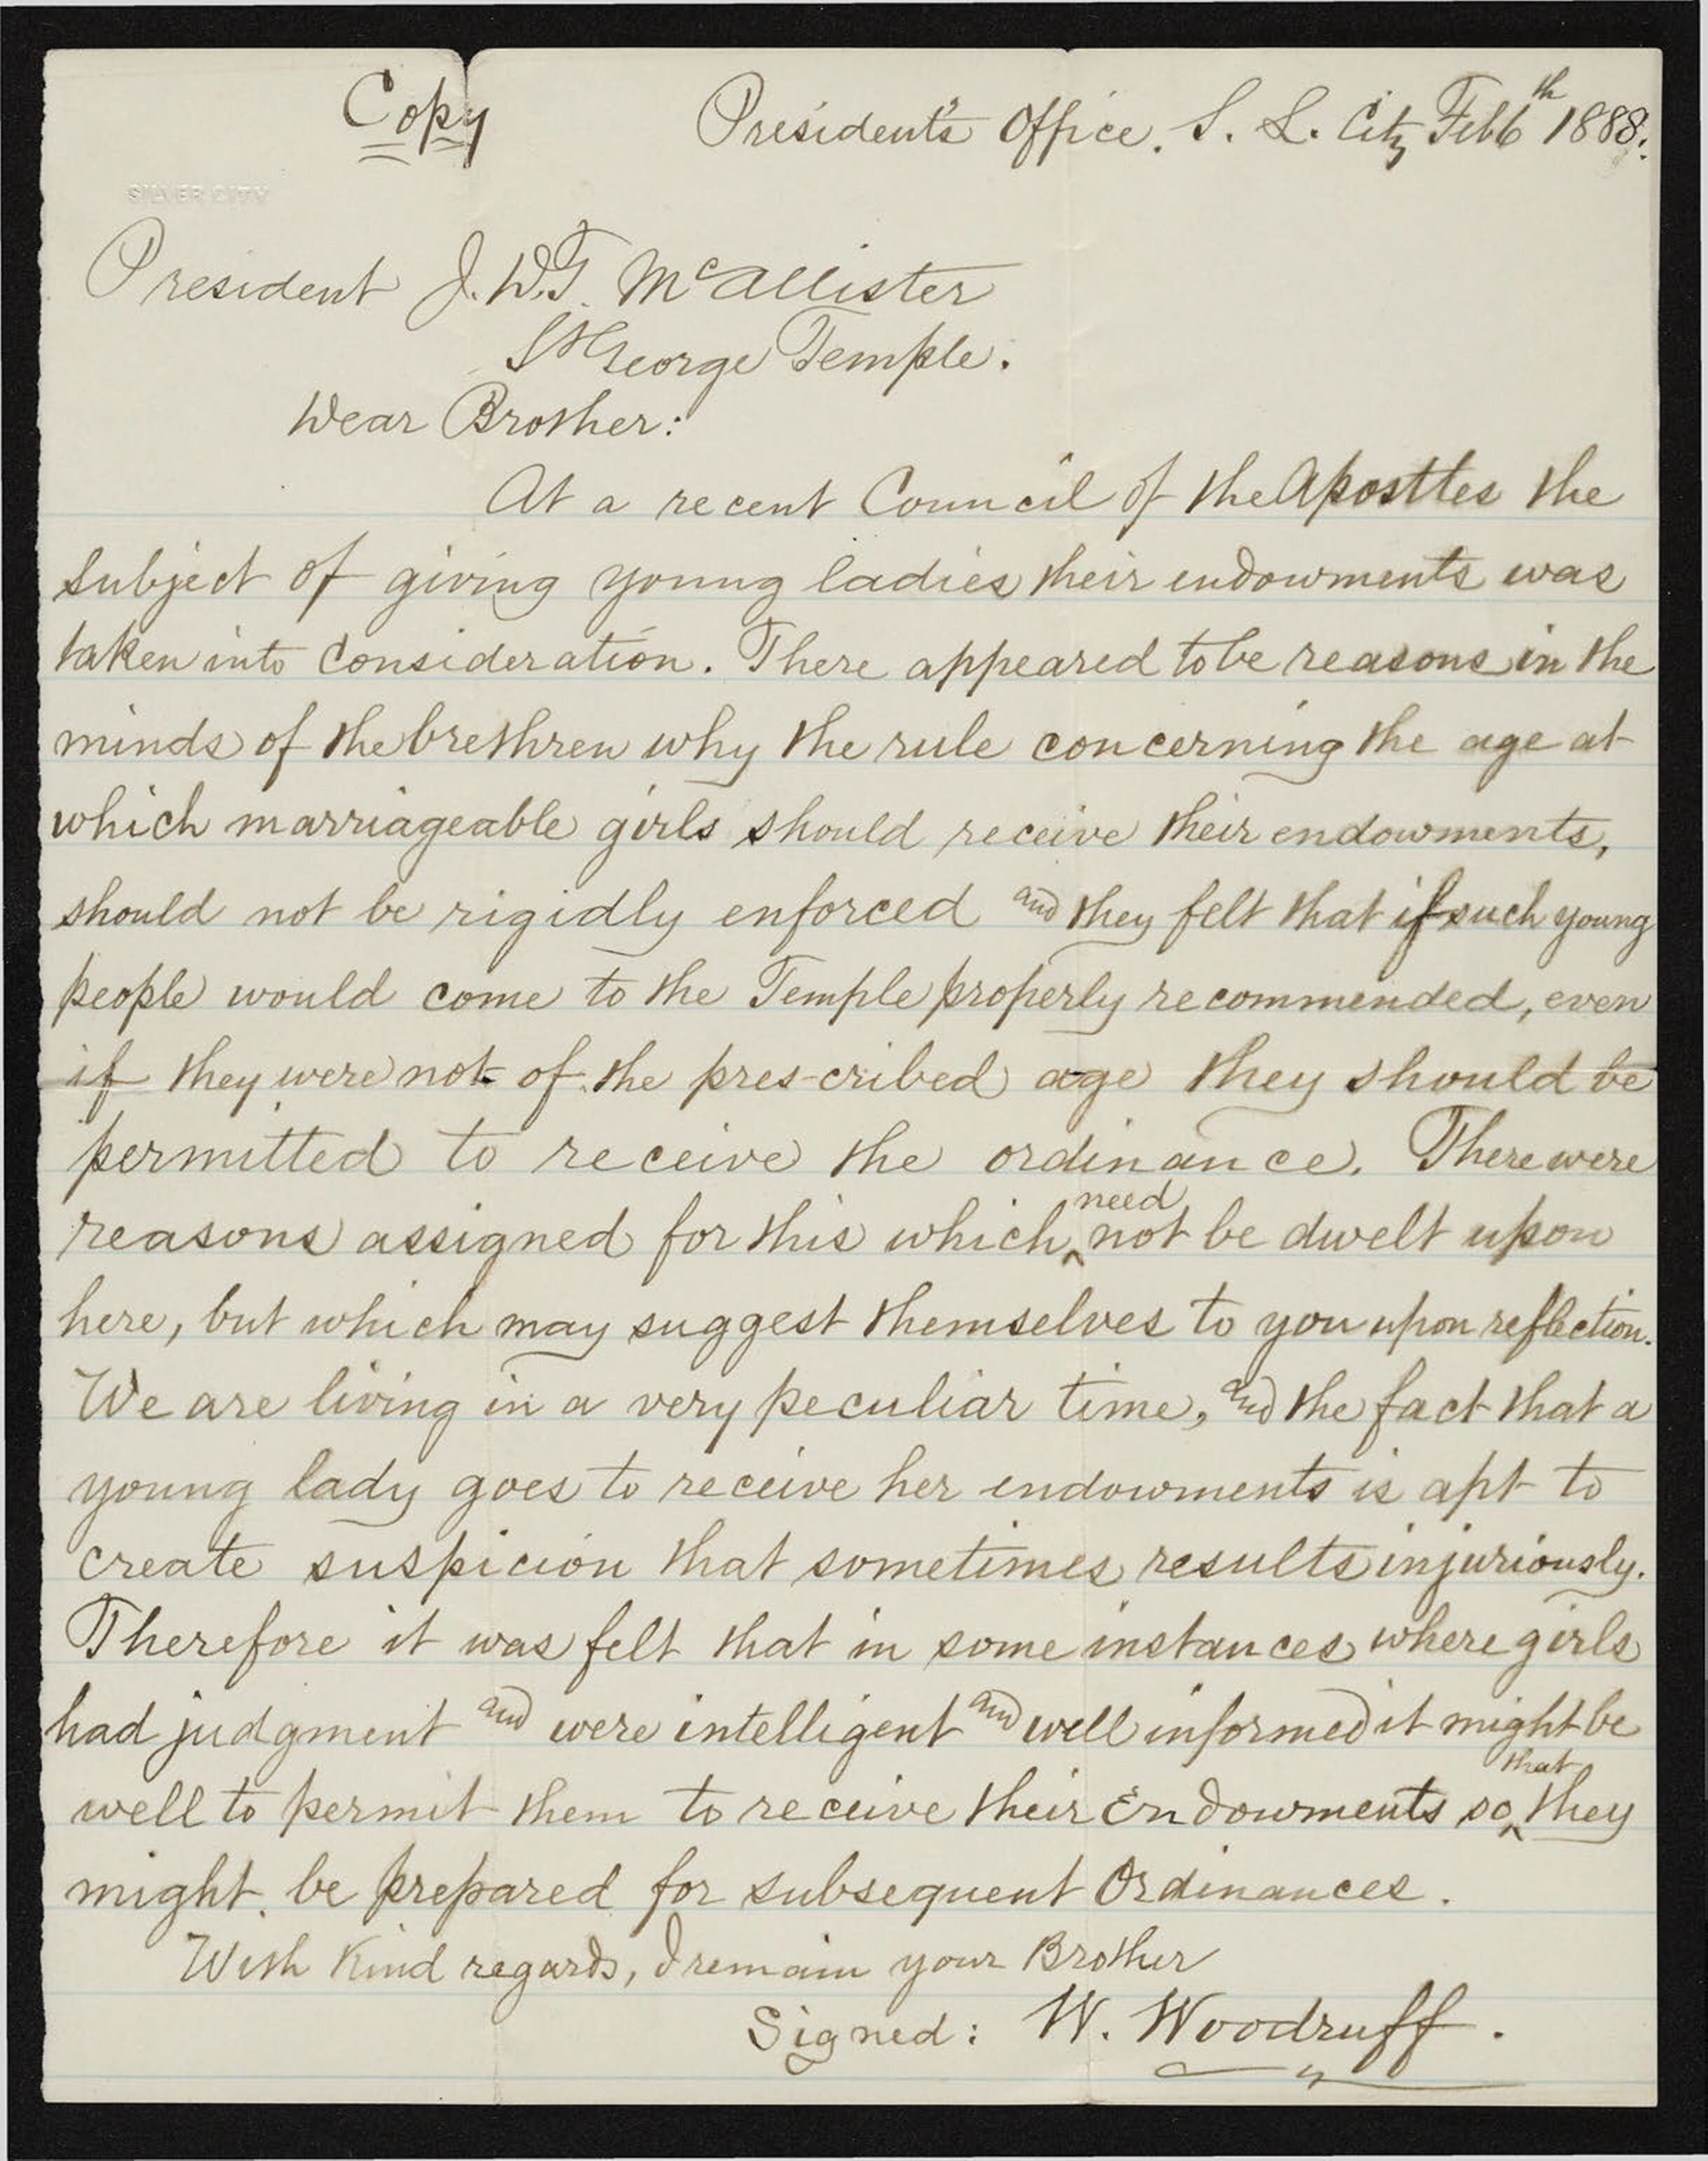 Copy President's Office, S. L. City Feb 6th 1888.
SILVER CITY
President J. W. T. McAllister
St George Temple.
Dear Brother:
At a recent Council of the Apostles the
subject of giving young ladies their endowments was
taken into consideration. There appeared to be reasons in the
minds of the brethren why the rule concerning the age at
which marriageable girls should receive their endowments,
should not be rigidly enforced and they felt that if such young
people would come to the Temple properly recommended, even
if they were not of the pres-cribed age they should be
permitted to receive the ordinance. There were
reasons assigned for this which need not be dwelt upon
here, but which may suggest themselves to you upon reflection.
We are living in a very peculiar time, and the fact that a
young lady goes to receive her endowments is apt to
create suspicion that sometimes results injuriously.
Therefore it was felt that in some instances where girls
had judgment and were intelligent and well informed it might be
well to permit them to receive their Endowments so that they
might be prepared for subsequent Ordinances.
With Kind regards, I remain your Brother
Signed: W. Woodruff.